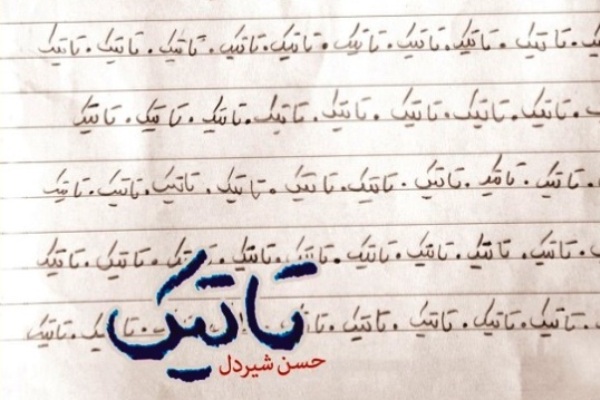 تاتیک . تاتیک . تاتیک . تاتیک . تاتیک . تاتیک . تاتیک . تاتیک . تاتیک
تاتیک . تاتیک . تاتیک . تاتیک . تاتیک . تاتیک . تاتیک . تاتیک
تاتیک . تاتیک . تاتیک . تاتیک . تاتیک . تاتیک . تاتیک . تاتیک . تاتیک
تاتیک . تاتیک . تاتیک . تاتیک . تاتیک . تاتیک . تاتیک . تاتیک . تاتیک
تاتیک . تاتیک . تاتیک . تاتیک . تاتیک
تاتیک
حسن شیردل